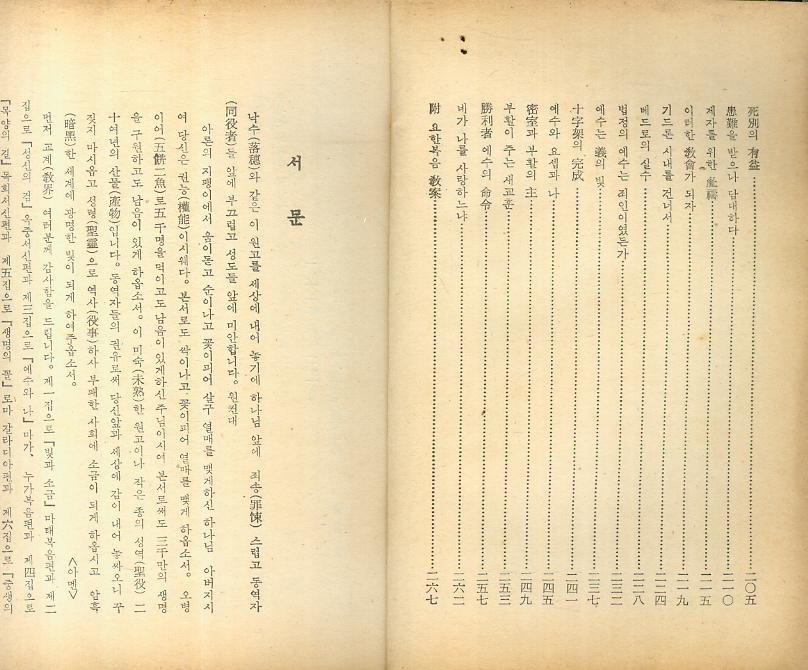 死別의 有益 二〇五
患難을 받으나 담대하다 二一〇
제자를 위한 祈禱 二一五
이러한 敎會가 되자 二一九
기드론 시내를 건너서 二二四
베드로의 실수 二二八
법정의 예수는 죄인이였든가 二三二
예수는 義의 빛 二三七
十字架의 完成 二四一
예수와 요셉과 나 二四五
密室과 부활의 主 二四九
부활이 주는 새교훈 二五三
勝利者 예수의 命令 二五七
네가 나를 사랑하느냐 二六二
附 요한복음 敎案 二六七
서 문
낙수(落穗)와 같은 이 원고를 세상에 내어 놓기에 하나님 앞에 죄송(罪悚)스럽고 동역자
(同役者)들 앞에 부끄럽고 성도들 앞에 미안합니다. 원컨대
아론의 지팽이에서 움이돋고 순이나고 꽃이피어 살구 열매를 맺게하신 하나님 아버지시
여 당신은 권능(權能)이시웨다. 본서로도 싹이나고 꽃이피어 열매를 맺게 하옵소서. 오병
이어(五餠二魚)로 五千명을 먹이고도 남음이 있게하신 주님이시여 본서로써도 三千만의 생명
을 구원하고도 남음이 있게 하옵소서. 이 미숙(未熟)한 원고이나 작은 종의 성역(聖役) 二
十여년의 산물(產物)입니다. 동역자들의 권유로써 당신앞과 세상에 감이 내어 놓싸오니 꾸
짖지 마시옵고 성령(聖靈)으로 역사(役事)하사 부패한 사회에 소금이 되게 하옵시고 암흑
(暗黑)한 세계에 광명한 빛이 되게 하여주옵소서. <아멘>
먼저 교계(敎界) 여러분께 감사함을 드립니다. 제一집으로 「빛과 소금」마태복음편과 제二
집으로 「성서의 검」옥중서신편과 제三집으로 「예수와 나」마가, 누가복음편과 제四집으로
「목양의 길」목회서신편과 제五집으로 「생명의 꽃」로마 갈라디아편과 제六집으로 「중생의